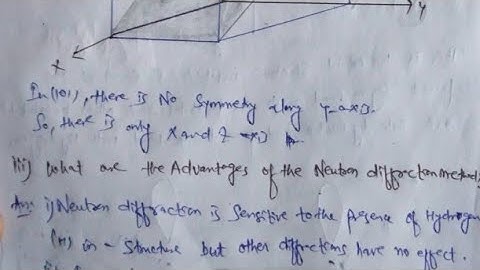 Y
X
In (101), there is No Symmetry along Y-axis.
So, there is only X and Z axis
iii) What are the Advantages of the Neutron diffraction method?
Ans i) Neutron diffraction is sensitive to the presence of Hydrogen
(H) in - Structure but other diffractions have no effect.